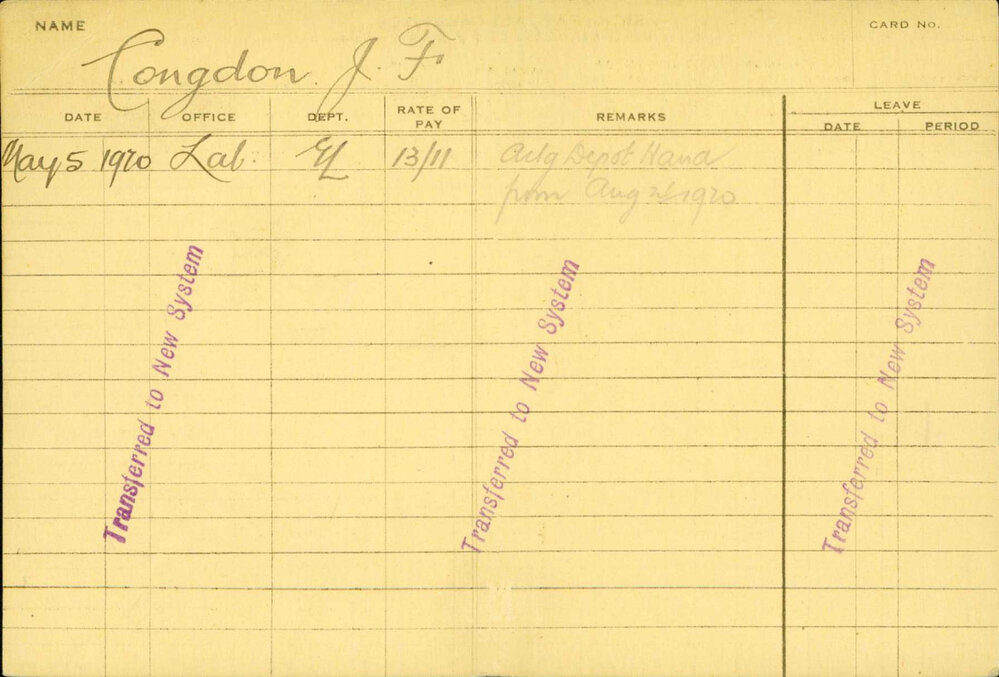 NAME
CARD No.
Congdon J. F.
DATE OFFICE DEPT. RATE OF PAY REMARKS LEAVE
DATE PERIOD
May 5 1920 Lab. EL 13/11 Actg Depot Hand
from Aug 1920
Transferred to New System
Transferred to New System
Transferred to New System